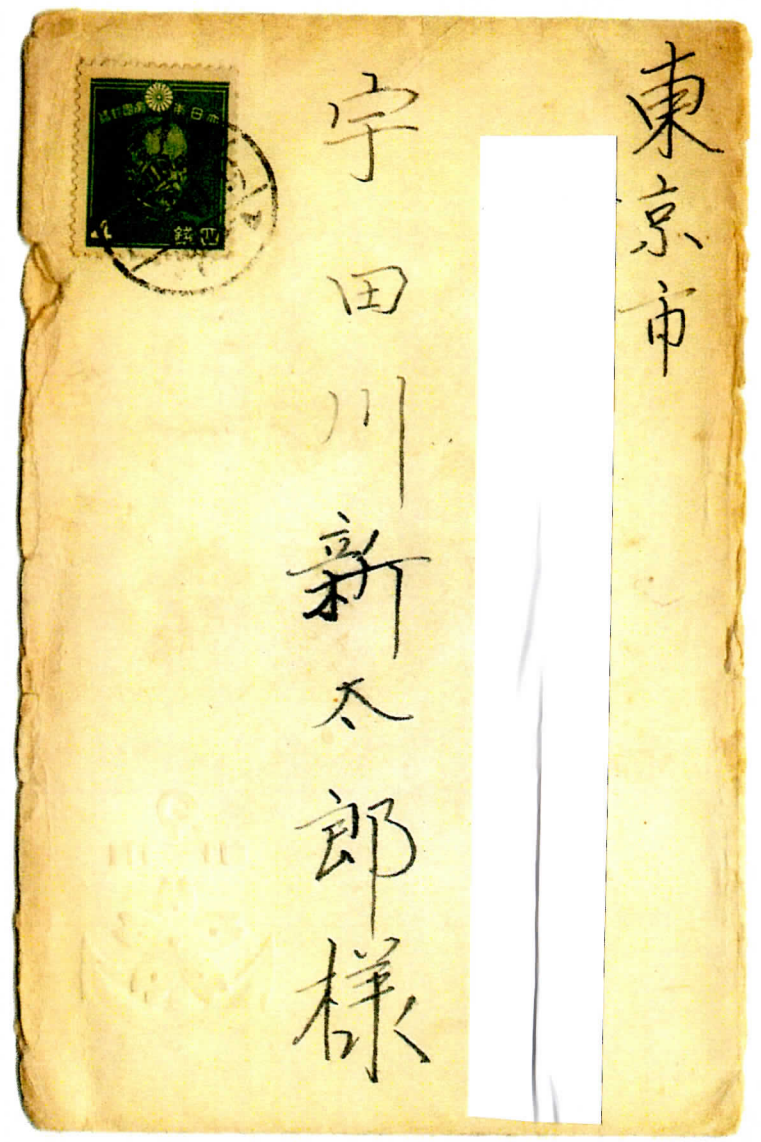 東京市
宇田川新太郎様
大日本帝国郵便
四銭